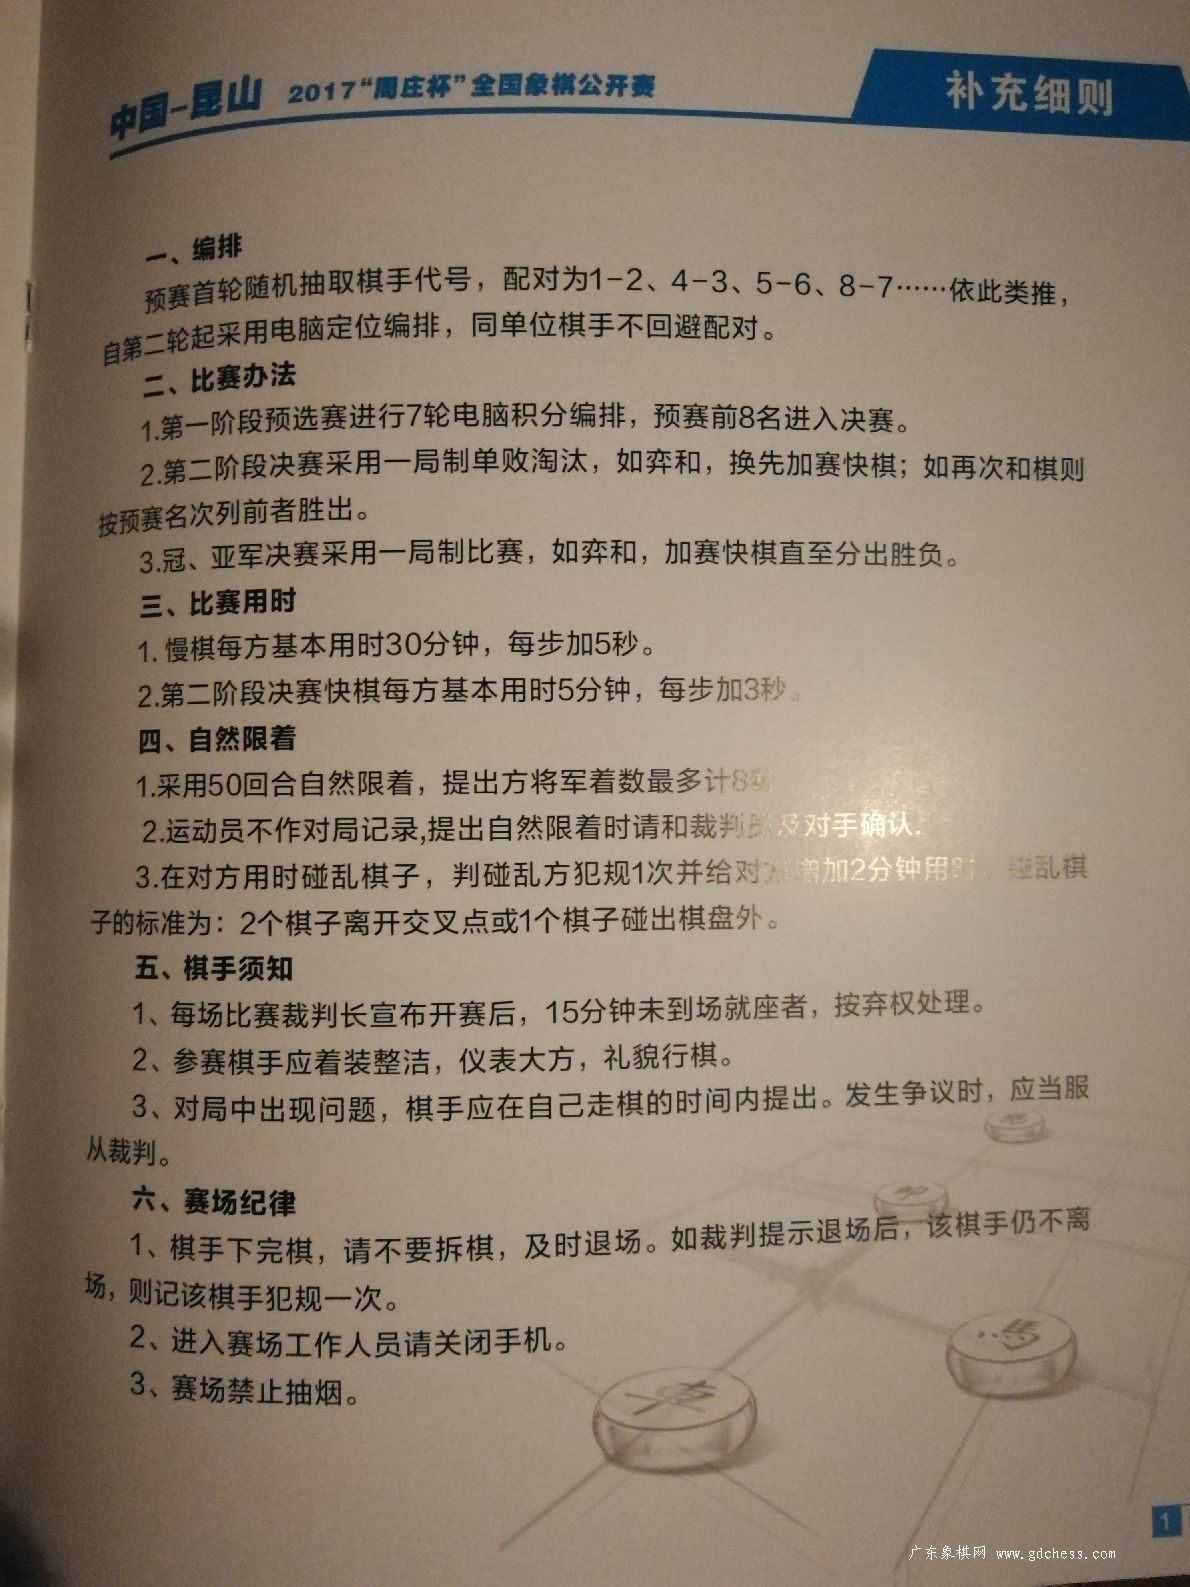 中国-昆山 2017“周庄杯”全国象棋公开赛
补充细则
一、编排
预赛首轮随机抽取棋手代号，配对为1-2、4-3、5-6、8-7……依此类推，
自第二轮起采用电脑定位编排，同单位棋手不回避配对。
二、比赛办法
1.第一阶段预选赛进行7轮电脑积分编排，预赛前8名进入决赛。
2.第二阶段决赛采用一局制单败淘汰，如弈和，换先加赛快棋；如再次和棋则
按预赛名次列前者胜出。
3.冠、亚军决赛采用一局制比赛，如弈和，加赛快棋直至分出胜负。
三、比赛用时
1. 慢棋每方基本用时30分钟，每步加5秒。
2.第二阶段决赛快棋每方基本用时5分钟，每步加3秒。
四、自然限着
1.采用50回合自然限着，提出方将军着数最多计8
2.运动员不作对局记录,提出自然限着时请和裁判员及对手确认.
3.在对方用时碰乱棋子，判碰乱方犯规1次并给对方增加2分钟用时。碰乱棋
子的标准为：2个棋子离开交叉点或1个棋子碰出棋盘外。
五、棋手须知
1、每场比赛裁判长宣布开赛后，15分钟未到场就座者，按弃权处理。
2、参赛棋手应着装整洁，仪表大方，礼貌行棋。
3、对局中出现问题，棋手应在自己走棋的时间内提出。发生争议时，应当服
从裁判。
六、赛场纪律
1、棋手下完棋，请不要拆棋，及时退场。如裁判提示退场后，该棋手仍不离
场，则记该棋手犯规一次。
2、进入赛场工作人员请关闭手机。
3、赛场禁止抽烟。
1
广东象棋网 www.gdchess.com